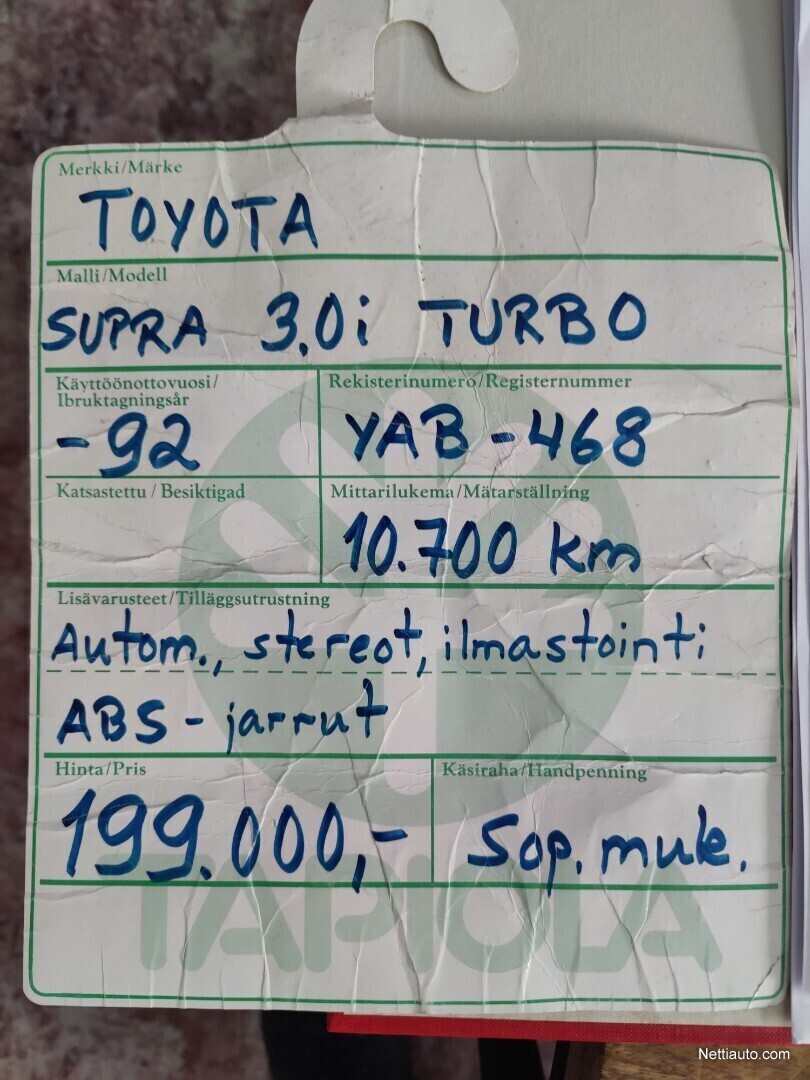 Merkki/Märke
TOYOTA
Malli/Modell
SUPRA 3,0i TURBO
Käyttöönottovuosi/
Ibruktagningsår
-92
Rekisterinumero/Registernummer
YAB-468
Katsastettu/Besiktigad
Mittarilukema/Mätarställning
10.700 km
Lisävarusteet/Tilläggsutrustning
Autom., stereot, ilmastointi
ABS-jarrut
Hinta/Pris
199.000,-
Käsiraha/Handpenning
Sop. muk.
TAPIOLA
Nettiauto.com